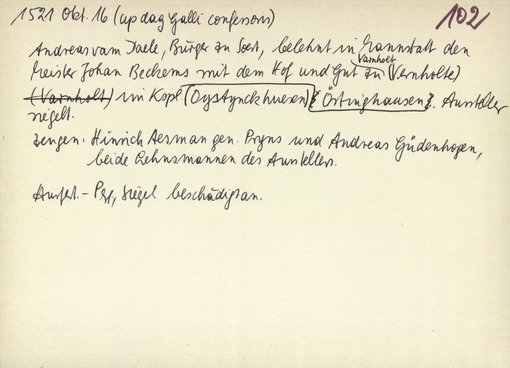 1521 Okt. 16 (up dag Galli confessoris) 102
Andreas vam Jaele, Bürger zu Soest, belehnt in Mannstatt den
Meister Johan Beckems mit dem Hof und Gut zu Varnholt (Vernholte)
(Varnholt) im Kspl (Oystynckhuesen) { Östinghausen }. Aussteller
siegelt.
Zeugen: Hinrich Aerman gen. Pryns und Andreas Güdenhogen,
beide Lehnsmannen des Ausstellers.
Ausfert. - Pg, Siegel beschädigt an.